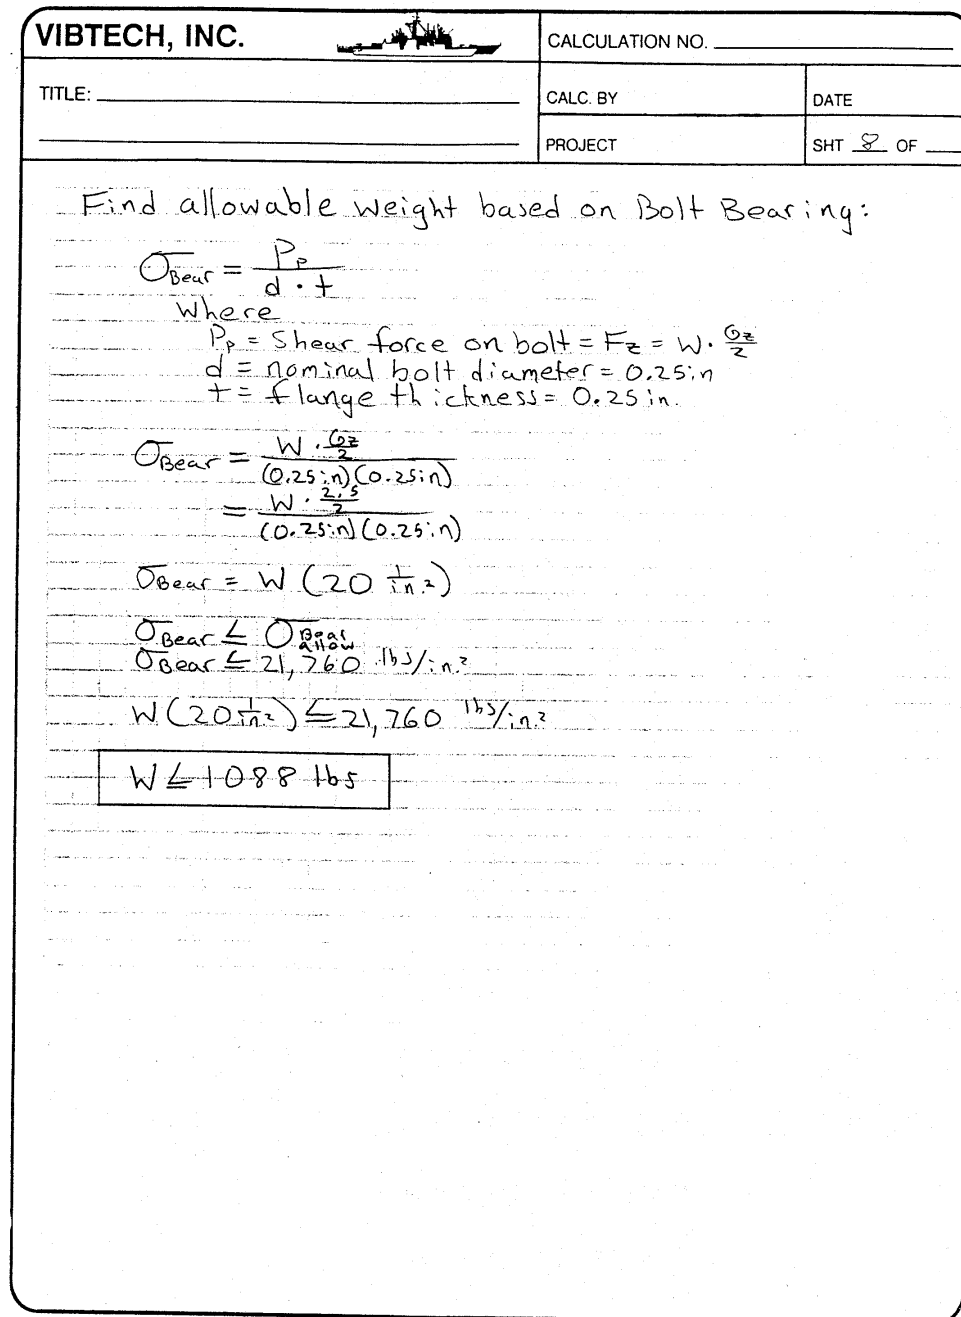 VIBTECH, INC.
CALCULATION NO.
TITLE:
CALC. BY
DATE
PROJECT
SHT 8 OF
Find allowable weight based on Bolt Bearing:
σBear = Pp / d · t
Where
Pp = Shear force on bolt = Fz = W · Gz/2
d = nominal bolt diameter = 0.25in
t = flange thickness = 0.25 in.
σBear = W · Gz/2 / (0.25in)(0.25in)
= W · 2.5/2 / (0.25in)(0.25in)
σBear = W (20 1/in.²)
σBear ≤ σBear allow
σBear ≤ 21,760 lbs/in.²
W (20 1/in²) ≤ 21,760 lbs/in.²
W ≤ 1088 lbs